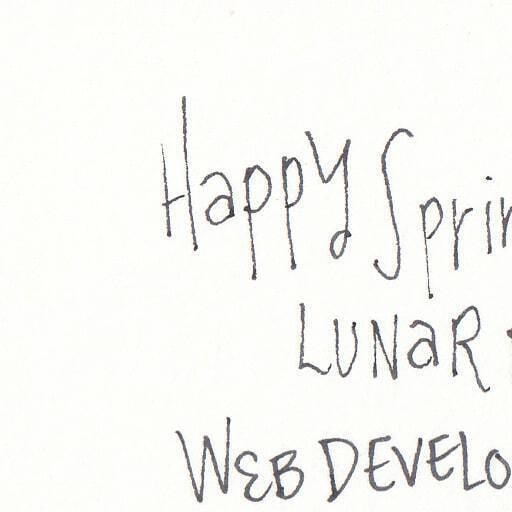 Happy Sprin
LUNaR
WEB DEVELO